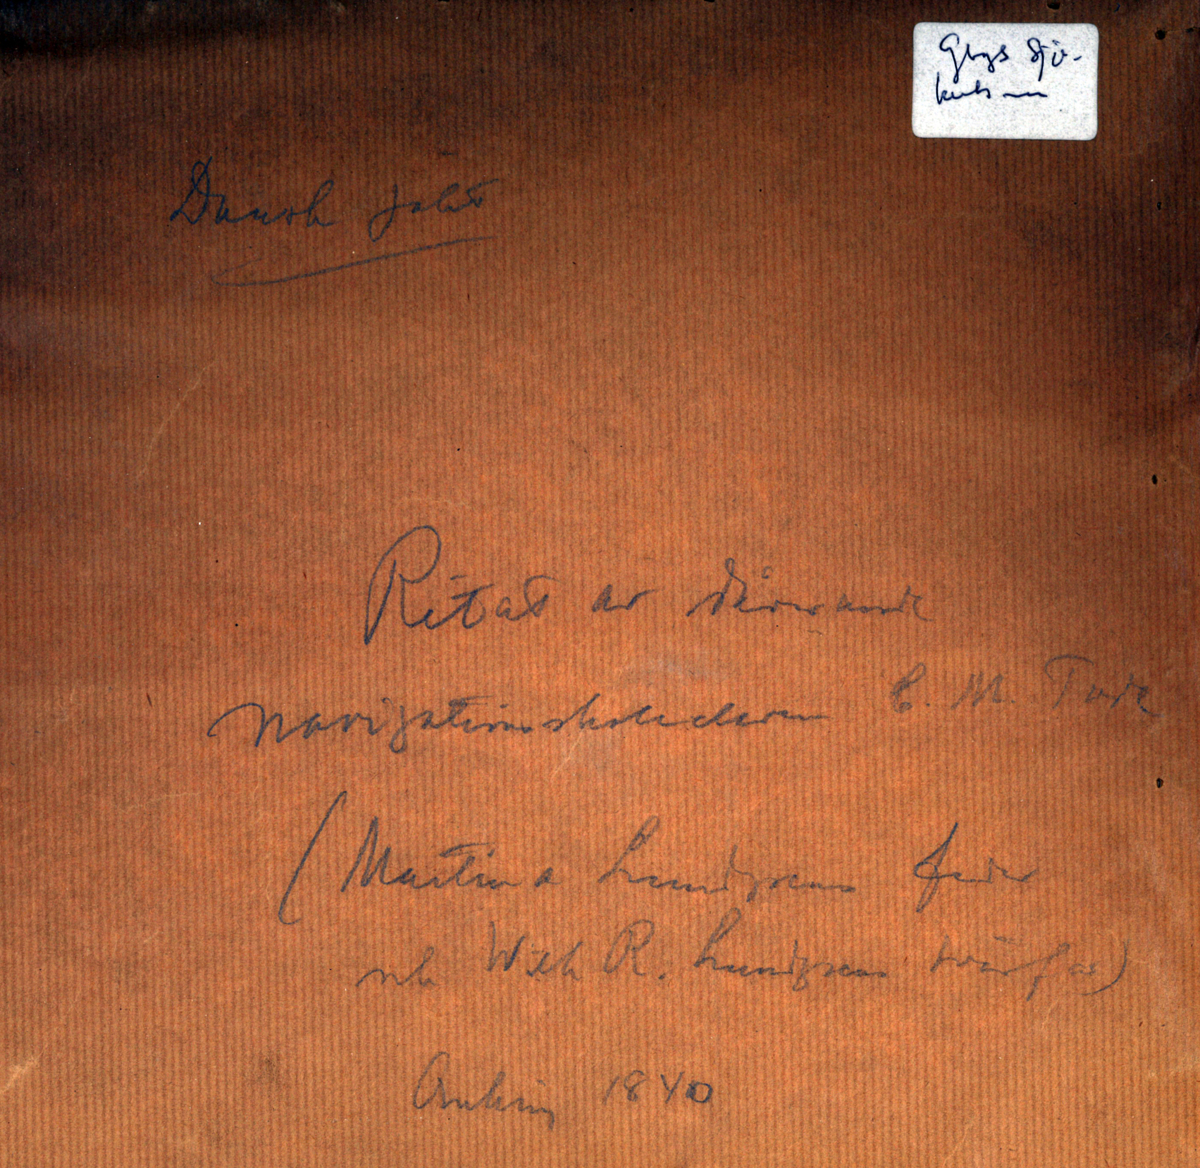 Gbgs Sjö-
Dansk jakt
Ritat av dåvarande
navigationsskoleeleven C. M.
(Martina Lundgrens fader
och Wilh R. Lundgrens svärfar)
Omkring 1840